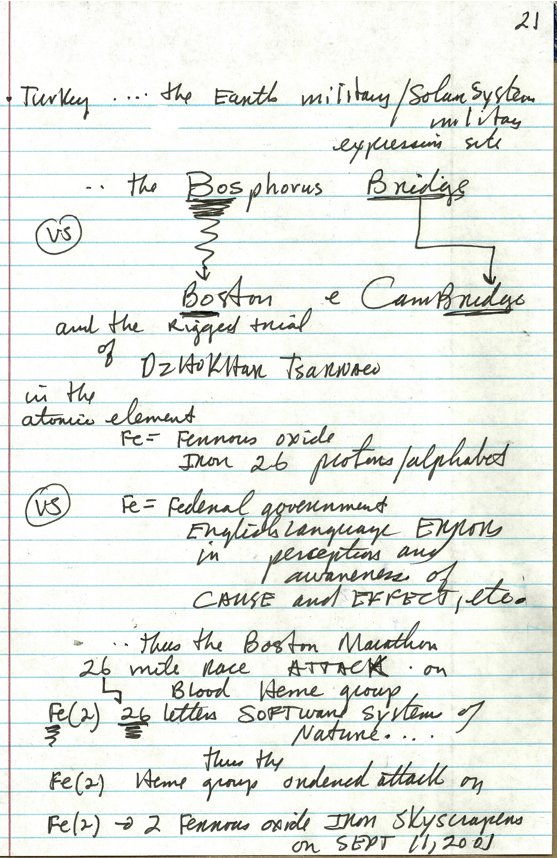 21
• Turkey .... the Earth military/Solar System
military
expression site
.. the Bosphorus Bridge
VS
Boston e CamBridge
and the Rigged trial
of
DZHOKHAR TSARNAEV
in the
atomic element
Fe = Ferrous oxide
Iron 26 protons/alphabet
VS
Fe = Federal government
English Language ERRORS
in perception and
awareness of
CAUSE and EFFECT, etc.
.. thus the Boston Marathon
26 mile race ATTACK on
Blood Heme group
Fe(2) 26 letters SOFTWARE System of
Nature....
thus the
Fe(2) Heme group ordered attack on
Fe(2) → 2 Ferrous oxide Iron Skyscrapers
on SEPT 11, 2001